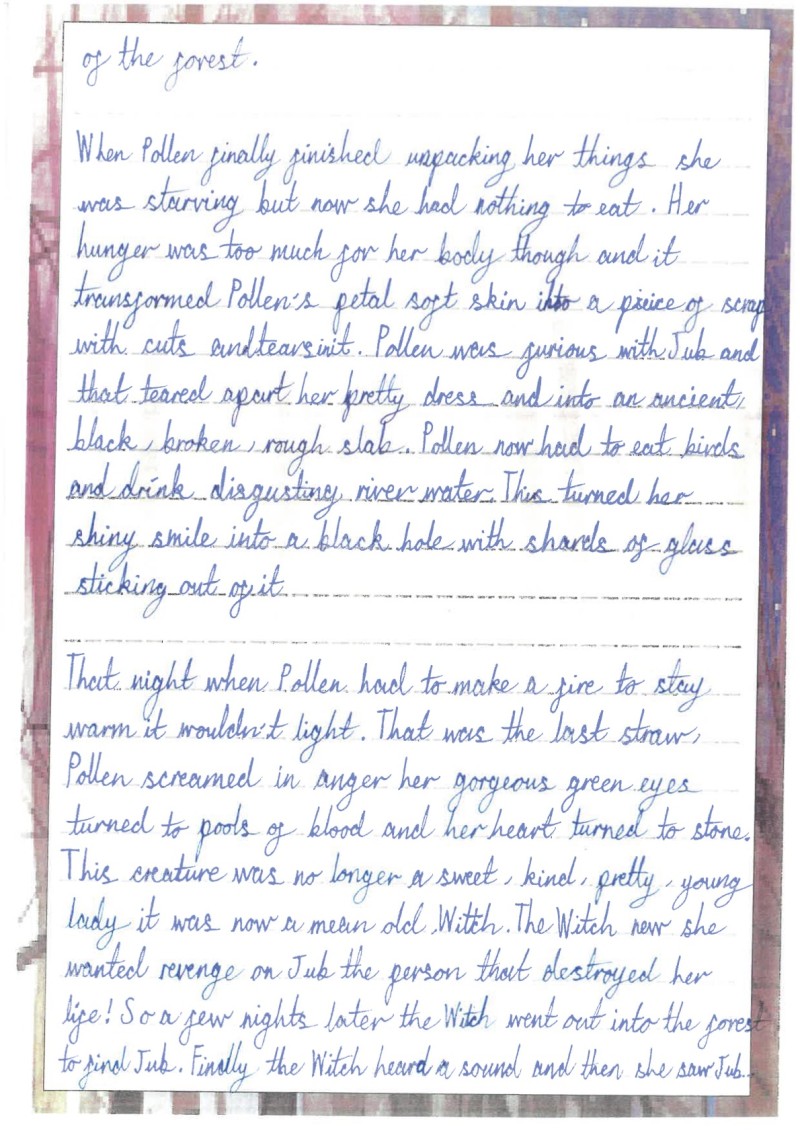 of the forest.
When Pollen finally finished unpacking her things she
was starving but now she had nothing to eat. Her
hunger was too much for her body though and it
transformed Pollen's petal soft skin into a pieice of scrap
with cuts and tears in it. Pollen was furious with Jub and
that teared apart her pretty dress and into an ancient,
black, broken, rough slab. Pollen now had to eat birds
and drink disgusting river water. This turned her
shiny smile into a black hole with shards of glass
sticking out of it
That night when Pollen had to make a fire to stay
warm it wouldn't light. That was the last straw,
Pollen screamed in anger her gorgeous green eyes
turned to pools of blood and her heart turned to stone.
This creature was no longer a sweet, kind, pretty, young
lady it was now a mean old Witch. The Witch new she
wanted revenge on Jub the person that destroyed her
life! So a few nights later the Witch went out into the forest
to find Jub. Finally the Witch heard a sound and then she saw Jub...